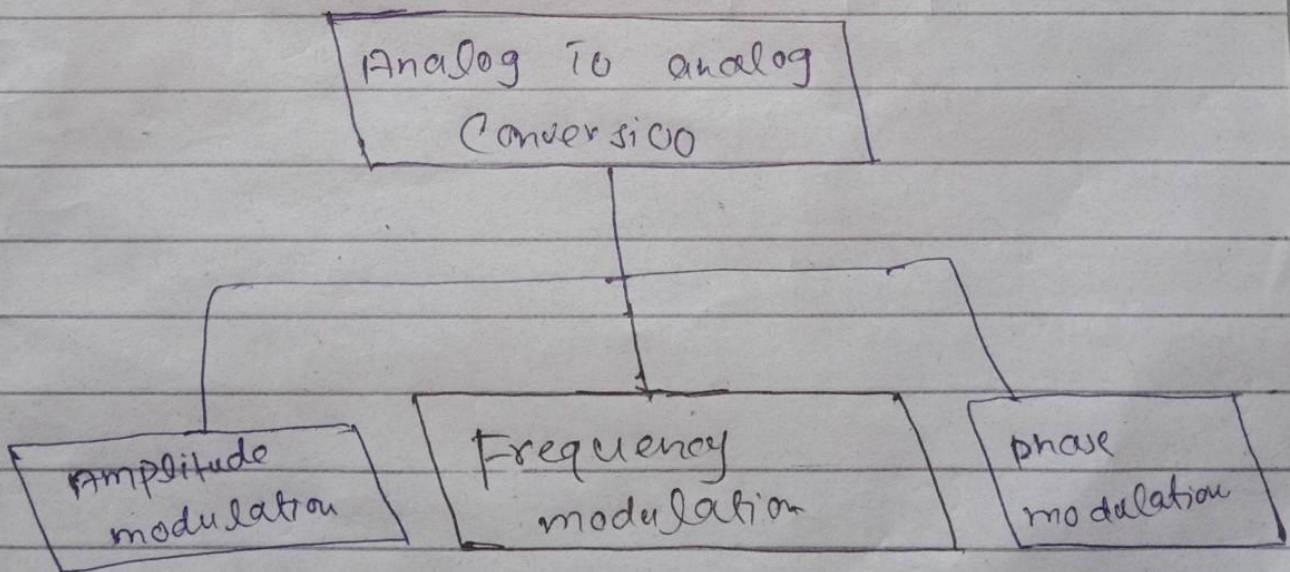 Analog To analog
Conversion
Amplitude
modulation
Frequency
modulation
phase
modulation